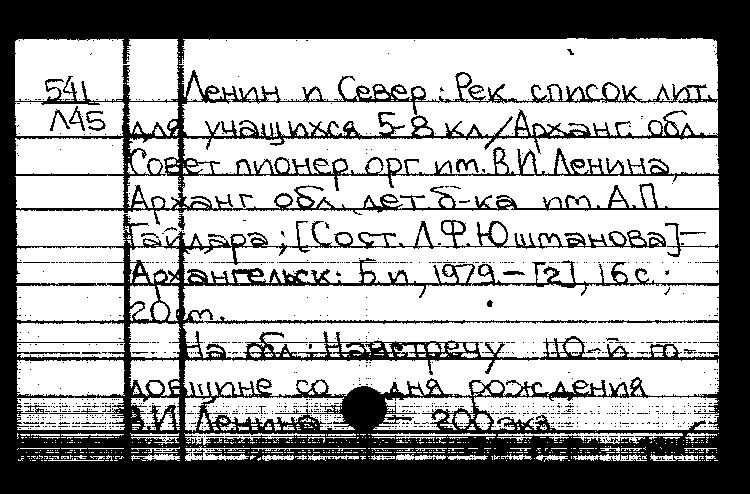 541 Ленин и Север: Рек. список лит.
Л45 для учащихся 5-8 кл./Арханг. обл.
Совет пионер. орг. им. В.И. Ленина,
Арханг. обл. дет. б-ка им. А.П.
Гайдара; [Сост. Л.Ф. Юшманова].—
Архангельск: Б.и., 1979.— [2], 16 с.;
20 см.
На обл.: Навстречу 110-й го-
довщине со дня рождения
В.И. Ленина — 200 экз.